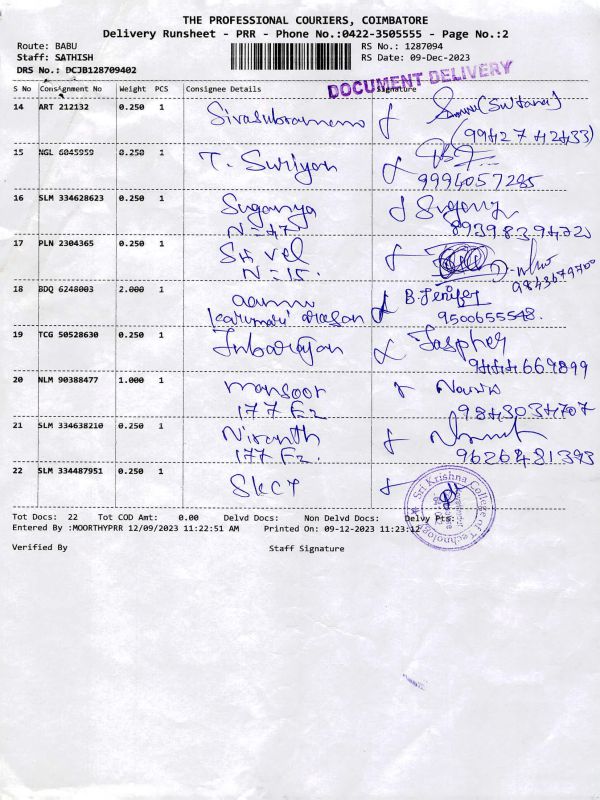 THE PROFESSIONAL COURIERS, COIMBATORE
Delivery Runsheet - PRR - Phone No.:0422-3505555 - Page No.:2
Route: BABU
RS No.: 1287094
Staff: SATHISH
RS Date: 09-Dec-2023
DRS No.: DCJB128709402
DOCUMENT DELIVERY
S No Consignment No Weight PCS Consignee Details Signature
14 ART 212132 0.250 1 Sivasubramani (Sultana)
15 NGL 6045959 0.250 1 T. Suriyan
9994057285
16 SLM 334628623 0.250 1 Suganya
N=47
17 PLN 2304365 0.250 1 Sri vel
N=15.
18 BDQ 6248003 2.000 1 B. Jenifer
9500655548.
19 TCG 50528630 0.250 1 Inbarajan Jaspher
9444669899
20 NLM 90388477 1.000 1 mansoor
177 F2 9843034707
21 SLM 334638210 0.250 1 Niranth
177 F2. 9626481393
22 SLM 334487951 0.250 1 SKCT
Sri Krishna College of Technology
Tot Docs: 22 Tot COD Amt: 0.00 Delvd Docs: Non Delvd Docs: Delvy Pts:
Entered By :MOORTHYPRR 12/09/2023 11:22:51 AM Printed On: 09-12-2023 11:23:12
Verified By Staff Signature